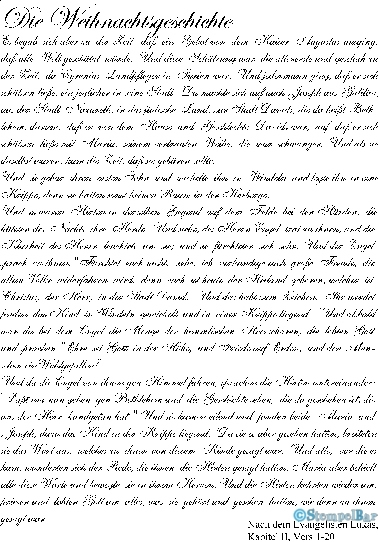 Die Weihnachtsgeschichte
Es begab sich aber zu der Zeit, daß ein Gebot von dem Kaiser Augustus ausging,
daß alle Welt geschätzt würde. Und diese Schätzung war die allererste und geschah zu
der Zeit, da Cyrenius Landpfleger in Syrien war. Und jedermann ging, daß er sich
schätzen ließe, ein jeglicher in seine Stadt. Da machte sich auf auch Joseph aus Galiläa,
aus der Stadt Nazareth, in das jüdische Land, zur Stadt Davids, die da heißt Beth-
lehem, darum, daß er von dem Hause und Geschlechte Davids war, auf daß er sich
schätzen ließe mit Maria, seinem vertrauten Weibe, die war schwanger. Und als sie
daselbst waren, kam die Zeit, daß sie gebären sollte.
Und sie gebar ihren ersten Sohn und wickelte ihn in Windeln und legte ihn in eine
Krippe, denn sie hatten sonst keinen Raum in der Herberge.
Und es waren Hirten in derselben Gegend auf dem Felde bei den Hürden, die
hüteten des Nachts ihre Herde. Und siehe, des Herrn Engel trat zu ihnen, und die
Klarheit des Herrn leuchtete um sie; und sie fürchteten sich sehr. Und der Engel
sprach zu ihnen: "Fürchtet euch nicht, siehe, ich verkündige euch große Freude, die
allem Volke widerfahren wird, denn euch ist heute der Heiland geboren, welcher ist
Christus, der Herr, in der Stadt David. Und das habt zum Zeichen: Ihr werdet
finden das Kind in Windeln gewickelt und in einer Krippe liegend." Und alsbald
war da bei dem Engel die Menge der himmlischen Heerscharen, die lobten Gott
und sprachen: "Ehre sei Gott in der Höhe, und Friede auf Erden, und den Men-
schen ein Wohlgefallen."
Und da die Engel von ihnen gen Himmel fuhren, sprachen die Hirten untereinander:
"Laßt uns nun gehen gen Bethlehem und die Geschichte sehen, die da geschehen ist, die
uns der Herr kundgetan hat." Und sie kamen eilend und fanden beide, Maria und
Joseph, dazu das Kind in der Krippe liegend. Da sie es aber gesehen hatten, breiteten
sie das Wort aus, welches zu ihnen von diesem Kinde gesagt war. Und alle, vor die es
kam, wunderten sich der Rede, die ihnen die Hirten gesagt hatten. Maria aber behielt
alle diese Worte und bewegte sie in ihrem Herzen. Und die Hirten kehrten wieder um,
priesen und lobten Gott um alles, was sie gehört und gesehen hatten, wie denn zu ihnen
gesagt war.
©StempelBar
Nach dem Evangelisten Lukas,
Kapitel II, Vers 1-20